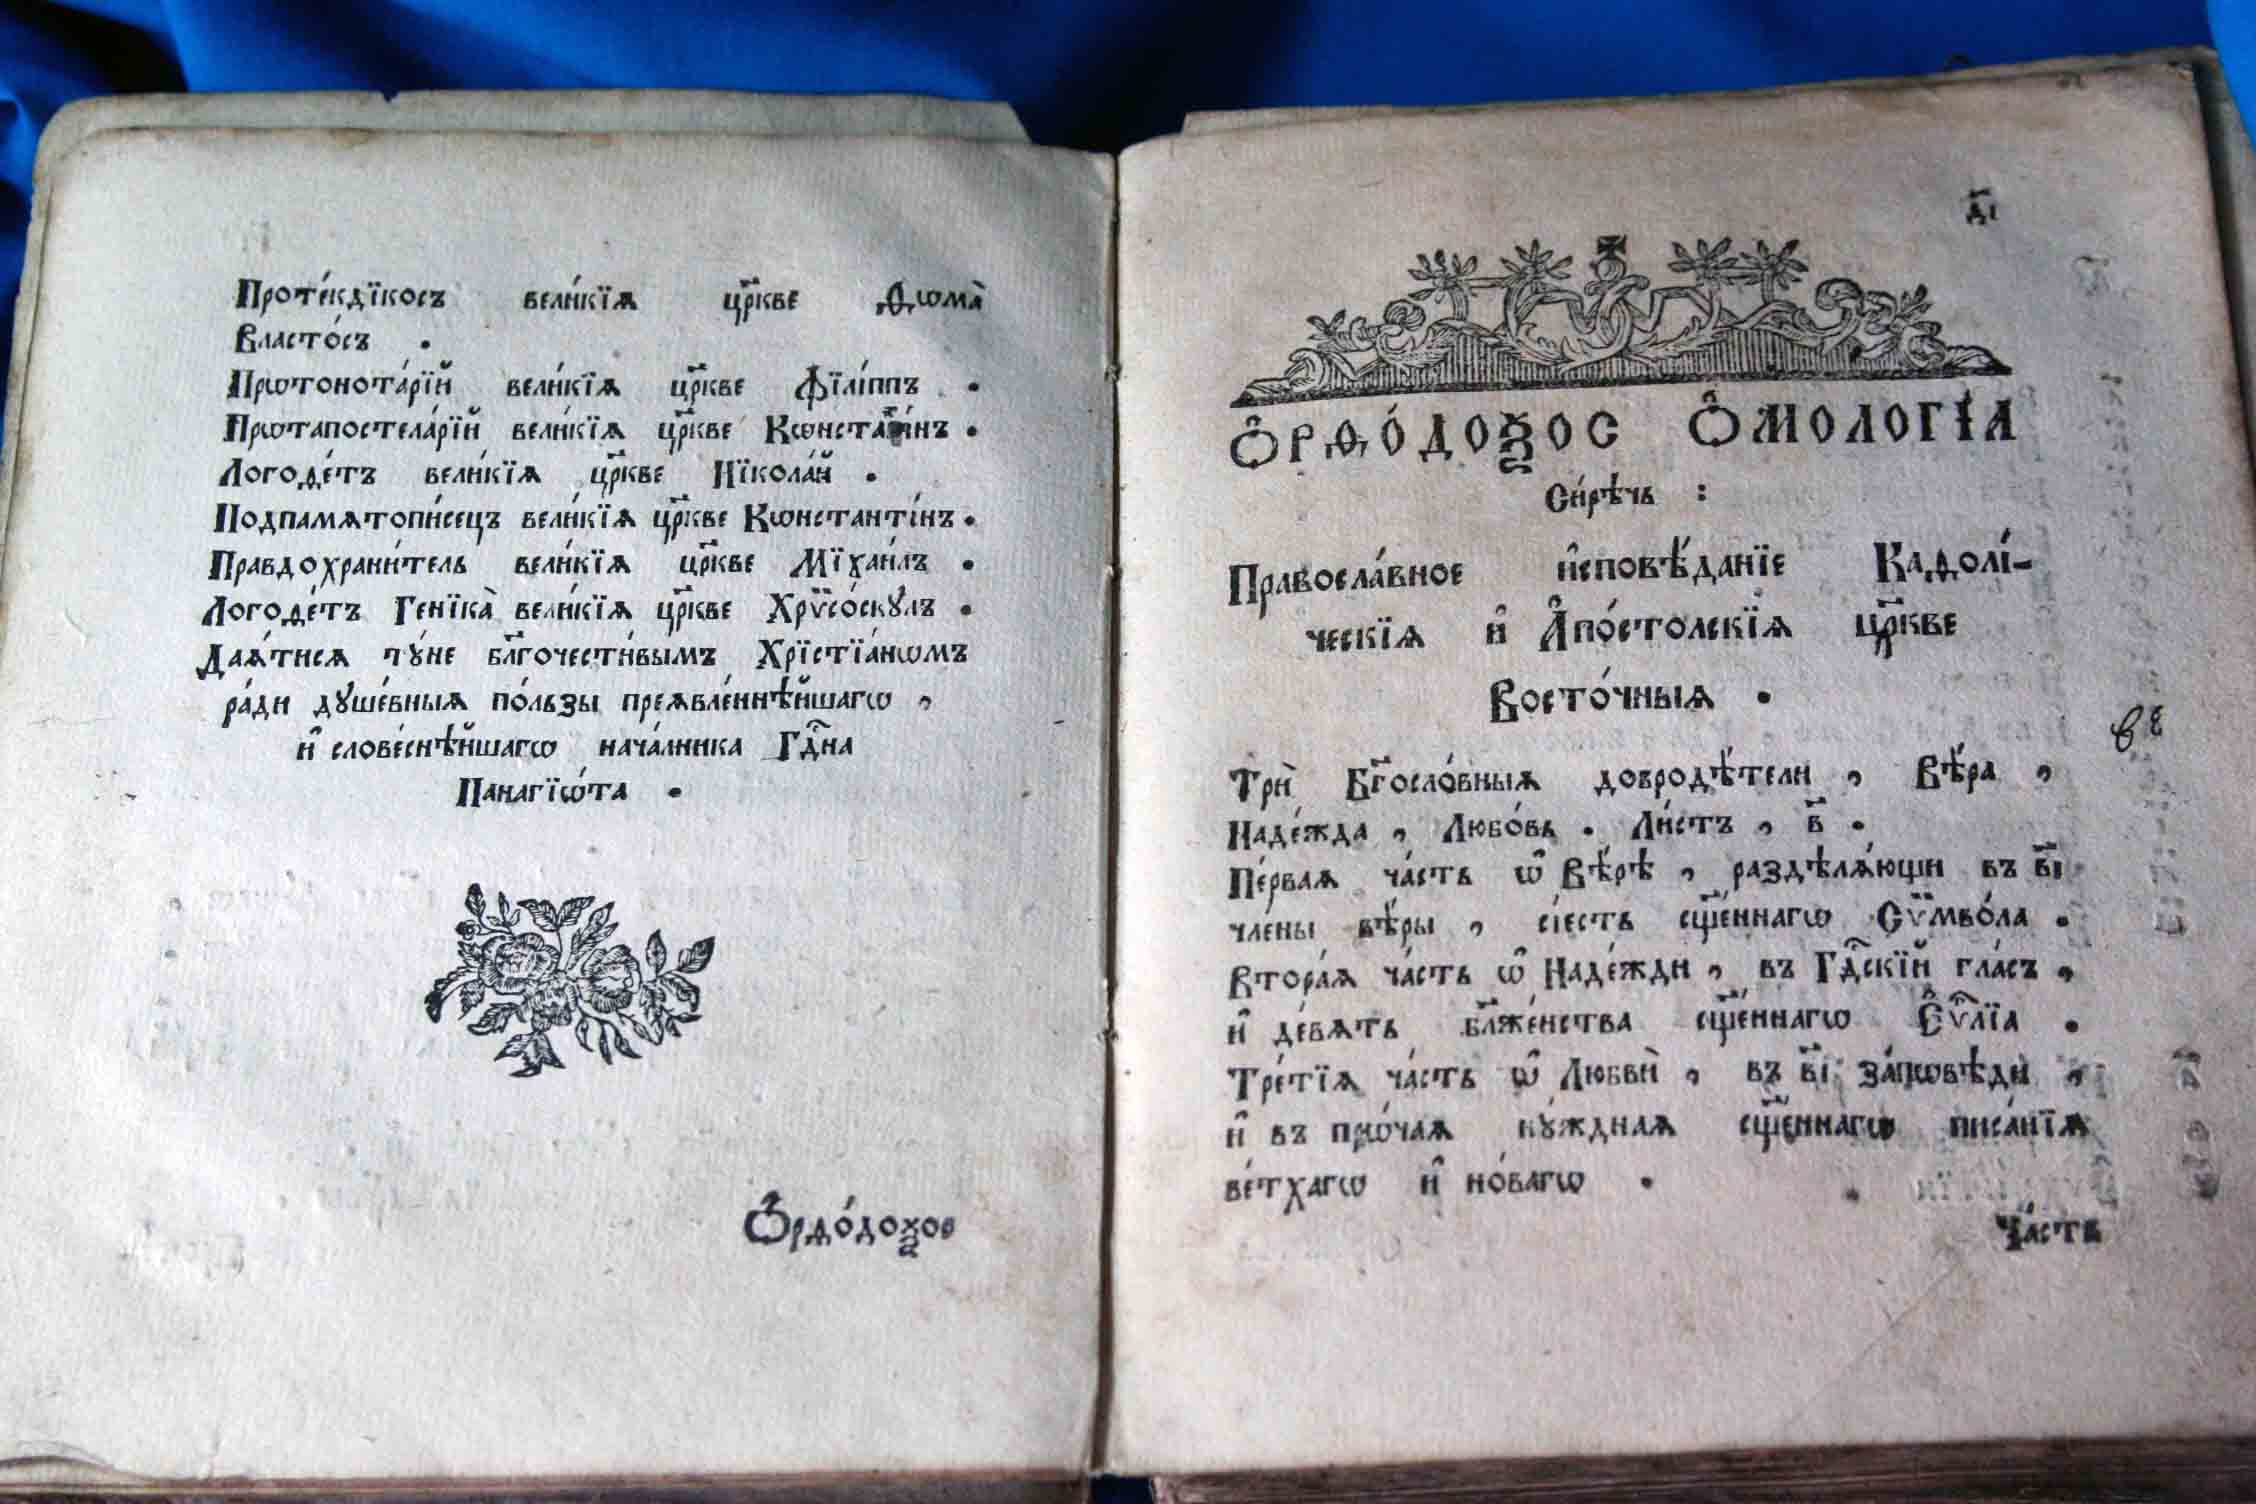 Проте́кдїкосъ вели́кїѧ цр҃кве Ѳѡма̀
Власто́съ .
Прѡтонота́рїй вели́кїѧ цр҃кве Фїлі́ппъ .
Прѡтапостела́рїй вели́кїѧ цр҃кве Кѡнстанті́нъ .
Логоѳе́тъ вели́кїѧ цр҃кве Нїкола́й .
Подпамѧтопи́сецъ вели́кїѧ цр҃кве Кѡнстанті́нъ .
Правдохрани́тель вели́кїѧ цр҃кве Мїхаи́лъ .
Логоѳе́тъ Генїка̀ вели́кїѧ цр҃кве Хрѷсо́скꙋлъ .
Даѧ́тисѧ тꙋ́не бл҃гочести́вымъ Хрїстїа́нѡмъ
ра́ди дꙋше́вныѧ по́льзы преѧвле́ннѣйшагѡ ,
и҆ слове́снѣйшагѡ нача́лника Гдⷭ҇на
Панагїѡ́та .
Ѻ҆рѳо́доѯос
д҃і
Ѻ҆РѲО́ДОѮОС Ѻ҆МОЛОГІ́А
Си́рѣчь :
Правосла́вное и҆сповѣ́данїе Каѳолі́-
ческїѧ и҆ А҆по́столскїѧ цр҃кве
Восто́чныѧ .
Трѝ Бг҃осло́вныѧ добродѣ́тели , Вѣ́ра ,
Наде́жда , Любо́вь . Ли́стъ , в҃ .
Пе́рваѧ ча́сть ѡ҆ Вѣ́рѣ , раздѣлѧ́ющи въ в҃і
чле́ны вѣ́ры , сі́есть сщ҃е́ннагѡ Сѷмво́ла .
Втора́ѧ ча́сть ѡ҆ Наде́жди , въ Гдⷭ҇скїй гла́съ ,
и҆ де́вѧть бл҃же́нства сщ҃е́ннагѡ Є҆ѵⷢ҇лїа .
Тре́тїѧ ча́сть ѡ҆ Любвѝ , въ в҃і за́пѡвѣди ,
и҆ въ прѡ́чаѧ нꙋ́жднаѧ сщ҃е́ннагѡ писа́нїѧ
ве́тхагѡ и҆ но́вагѡ .
Ча́сть